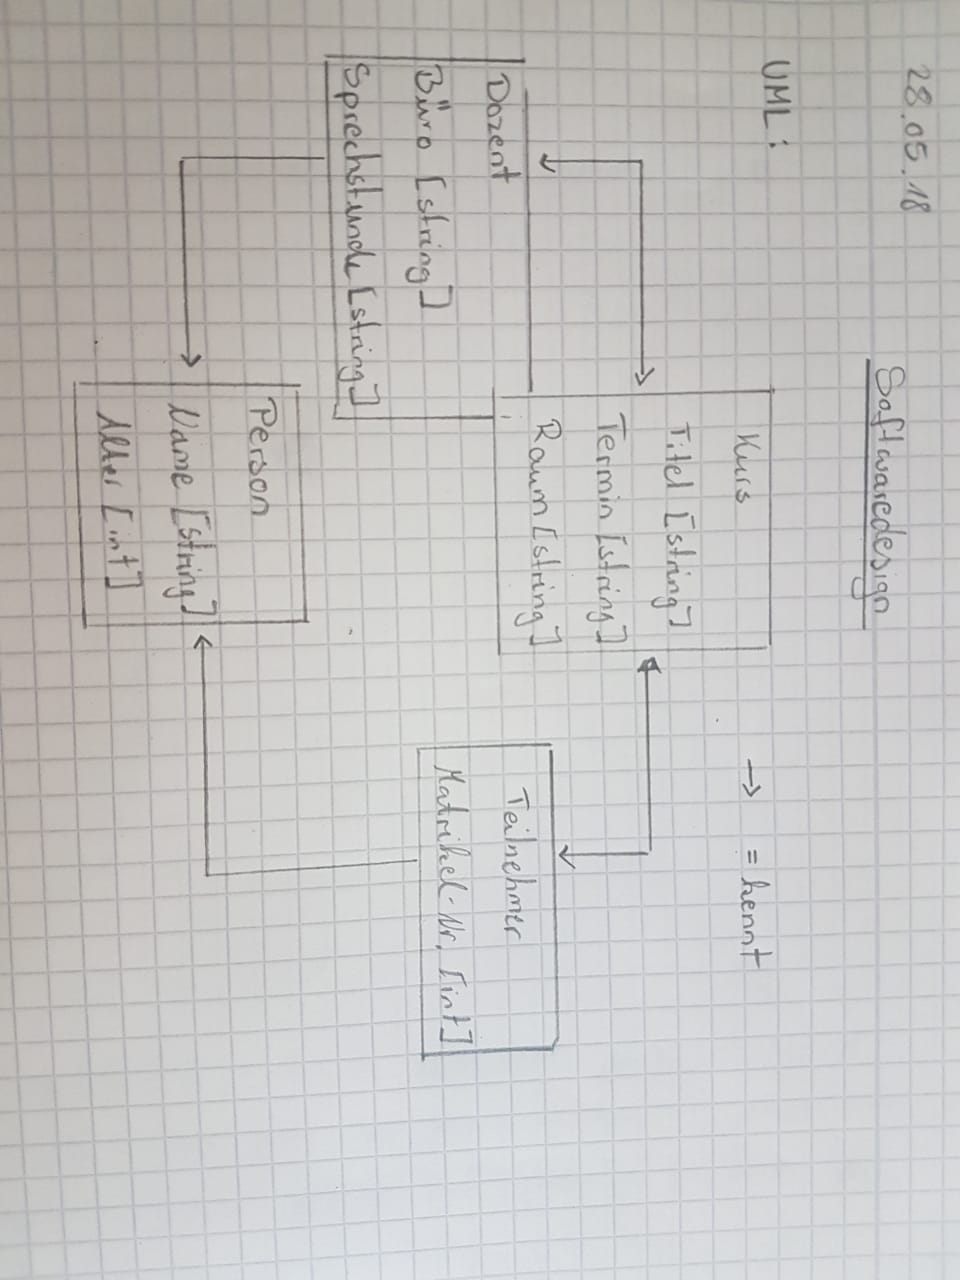 28.05.18
Softwaredesign
UML:
Kurs
Titel [string]
Termin [string]
Raum [string]
→ = kennt
Dozent
Büro [string]
Sprechstunde [string]
Teilnehmer
Matrikel-Nr. [int]
Person
Name [string]
Alter [int]